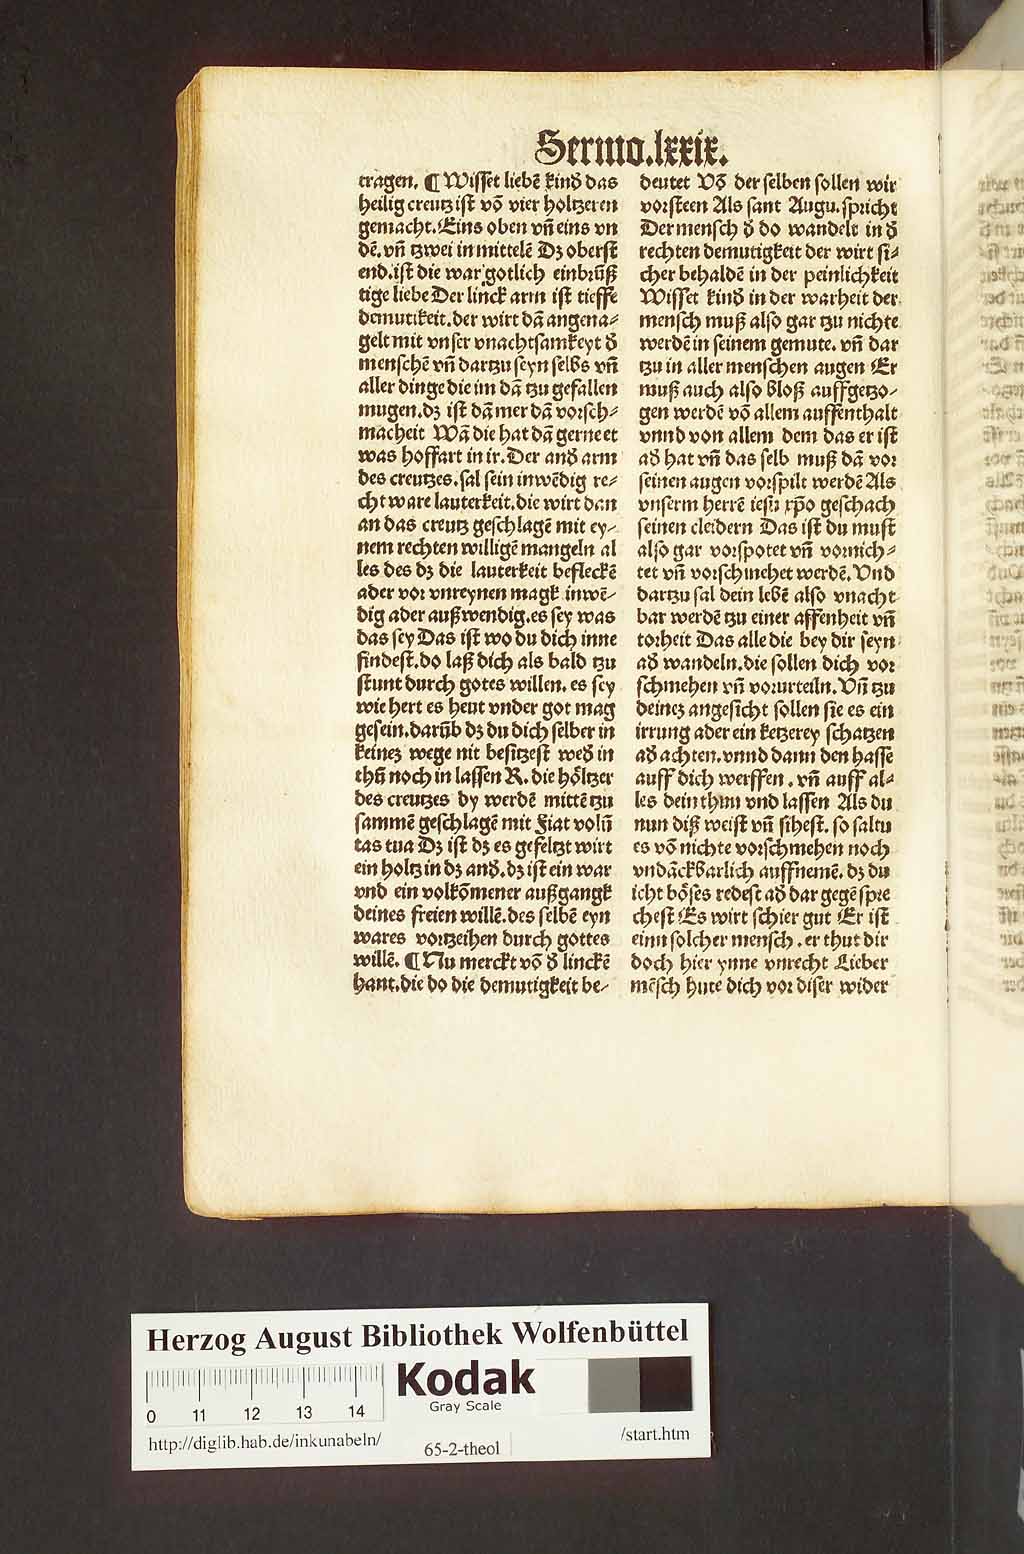 Sermo.lxxix.
tragen. ¶ Wisset liebē kind das
heilig creutz ist vō vier holtzeren
gemacht. Eins oben vñ eins vn
dē. vñ tzwei in mittelē Dz oberst
end. ist die war gotlich einbrūß
tige liebe Der linck arm ist tieffe
demutikeit. der wirt dā angena⸗
gelt mit vnser vnachtsamkeyt d̕
menschē vñ dartzu seyn selbs vñ
aller dinge die im dā tzu gefallen
mugen. dz ist dā mer dā vorsch⸗
macheit Wā die hat dā gerne et
was hoffart in ir. Der and̕ arm
des creutzes. sal sein inwēdig re⸗
cht ware lauterkeit. die wirt dan
an das creutz geschlagē mit ey⸗
nem rechten willigē mangeln al
les des dz die lauterkeit befleckē
ader vor vnreynen magk inwē⸗
dig ader außwendig. es sey was
das sey Das ist wo du dich inne
findest. do laß dich als bald tzu
stunt durch gotes willen. es sey
wie hert es heut vnder got mag
gesein. darūb dz du dich selber in
keinez wege nit besitzest wed̕ in
thū noch in lassen R. die höltzer
des creutzes dy werdē mittē tzu
sammē geschlagē mit Fiat volū
tas tua Dz ist dz es gefeltzt wirt
ein holtz in dz and̕. dz ist ein war
vnd ein volkōmener außgangk
deines freien willē. des selbē eyn
wares vortzeihen durch gottes
willē. ¶ Nu merckt vō d̕ linckē
hant. die do die demutigkeit be⸗
deutet Vō der selben sollen wir
vorsteen Als sant Augu. spricht
Der mensch d̕ do wandelt in d̕
rechten demutigkeit der wirt si⸗
cher behaldē in der peinlichkeit
Wisset kind in der warheit der
mensch muß also gar tzu nichte
werdē in seinem gemute. vñ dar
tzu in aller menschen augen Er
muß auch also bloß auffgetzo⸗
gen werdē vō allem auffenthalt
vnnd von allem dem das er ist
ad̕ hat vñ das selb muß dā vor
seinen augen vorspilt werdē Als
vnserm herrē iesu xp̄o geschach
seinen cleidern Das ist du must
also gar vorspotet vñ vornich⸗
tet vñ vorschmehet werdē. Vnd
dartzu sal dein lebē also vnacht
bar werdē tzu einer affenheit vñ
torheit Das alle die bey dir seyn
ad̕ wandeln. die sollen dich vor
schmehen vñ vorurteiln. Vñ tzu
deinez angesicht sollen sie es ein
irrung ader ein ketzerey schatzen
ad̕ achten. vnnd dann den hasse
auff dich werffen. vñ auff al⸗
les dein thun vnd lassen Als du
nun diß weist vñ sihest. so saltu
es vō nichte vorschmehen noch
vndāckbarlich auffnemē. dz du
icht böses redest ad̕ dar gegē spre
chest Es wirt schier gut Er ist
einn solcher mensch. er thut dir
doch hier ynne vnrecht Lieber
mēsch hute dich vor diser wider
Herzog August Bibliothek Wolfenbüttel
Kodak
Gray Scale
0 11 12 13 14
http://diglib.hab.de/inkunabeln/ 65-2-theol /start.htm